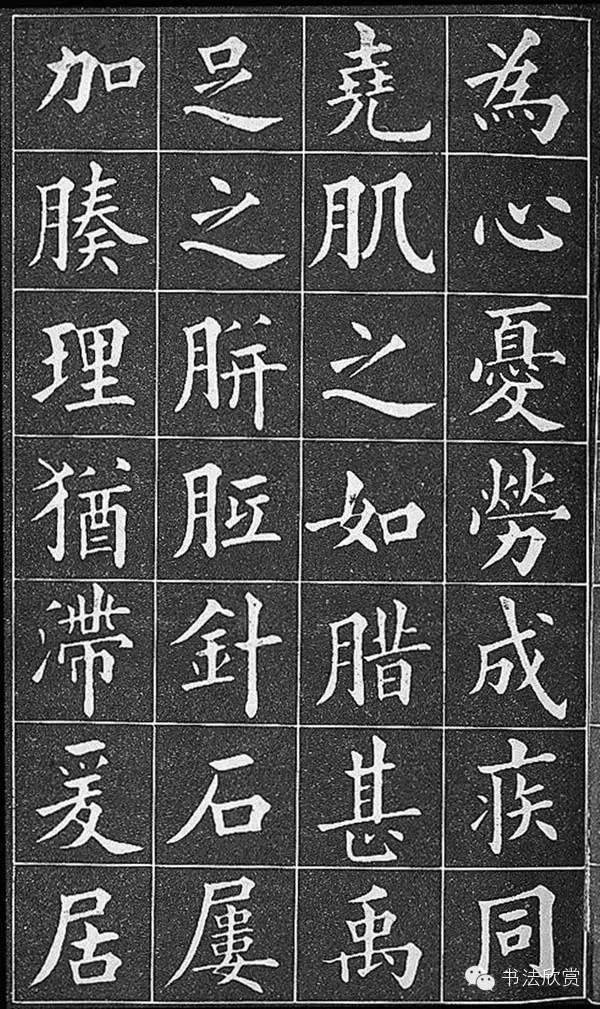 為心憂勞成疾同
堯肌之如腊甚禹
足之胼胝針石屢
加腠理猶滯爰居
书法欣赏